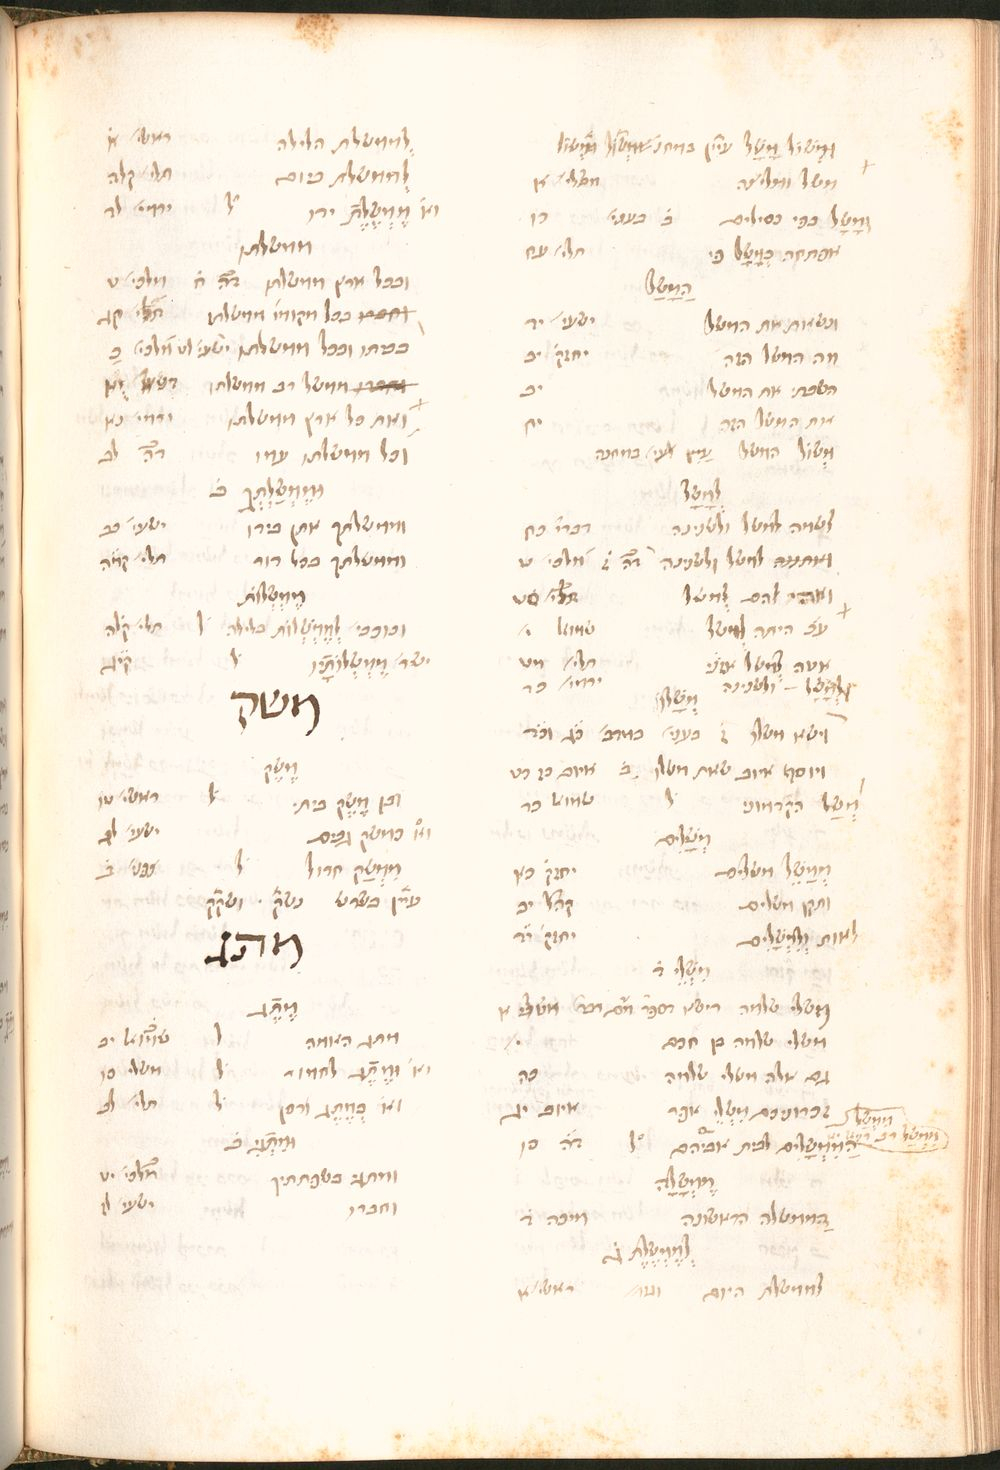 משל ומליצה משלי א
ומשל בפי כסילים ב בעני׳ כו
אפתחה במשל פי תלי׳ עח
המשל
ונשאת את המשל ישעי׳ יד
מה המשל הזה יחזק׳ יב
השבתי את המשל יב
את המשל הזה יח
למשל
לשמה למשל ולשנינה דברי׳ כח
למשל ולשנינה מלכי׳ ט
להם למשל תלי׳ סט
על כ׳ היתה למשל שמוא׳ י׳
למשל ולשנינה ירמי׳ כד
משלו
וישא משלו ז בעני׳ במדב׳ כג וכד
ויוסף איוב שאת משלו ב איוב כז כט
משל הקדמוני ל שמוא׳ כד
משלים
ממשל משלים יחזק׳ כא
ותקן משלים קהל׳ יב
לאות ולמשלים יחזק׳ יד
משלי ד
משלי שלמה
משלי שלמה בן חכם י׳
גם אלה משלי שלמה כה
זכרוניכם משלי אפר איוב יג
הממשלים לבית אביהם ל דה׳ כו
ממשלה
הממשלה הראשונה מיכה ד
לממשלת ג
לממשלת היום ראשי׳ א
לממשלת הלילה ראשי׳ א
לממשלת ביום תלי׳ קלה
וא׳ ממשלת ידו ל ירמי׳ לד
ממשלתו
ובכל ארץ ממשלתו דה׳ ח מלכי׳ ט
בכל מקומו׳ ממשלתו תלי׳ קג
בביתו ובכל ממשלתו ישעי׳ לט מלכי׳ כ
ומשל רב ממשלתו דניאל יא
ואת כל ארץ ממשלתו ירמי׳ נא
וכל ממשלתו עמו דה׳ לב
וממשלתך ב
וממשלתך אתן בידו ישעי׳ כב
וממשלתך בכל דור תלי׳ קמה
ממשלות
וכוכבי׳ לממשלות בלילה ל תלי׳ קלה
ישר׳ ממשלותיו ל קיד
משק
משק
ובן משק ביתי ל ראשי׳ טו
וא׳ כמשק גבים ישעי׳ לג
ממשק חרול ל צפני׳ ב
עיין בשרש נשק ושקק
מתג
מתג
מתג האמה ל שמוא׳ יב
וא׳ ומתג לחמור ל משלי כו
וא׳ במתג ורסן ל תלי׳ לב
ומתגי ב
ומתגי בשפתתיך מלכי׳ יט
וחברו ישעי׳ לז